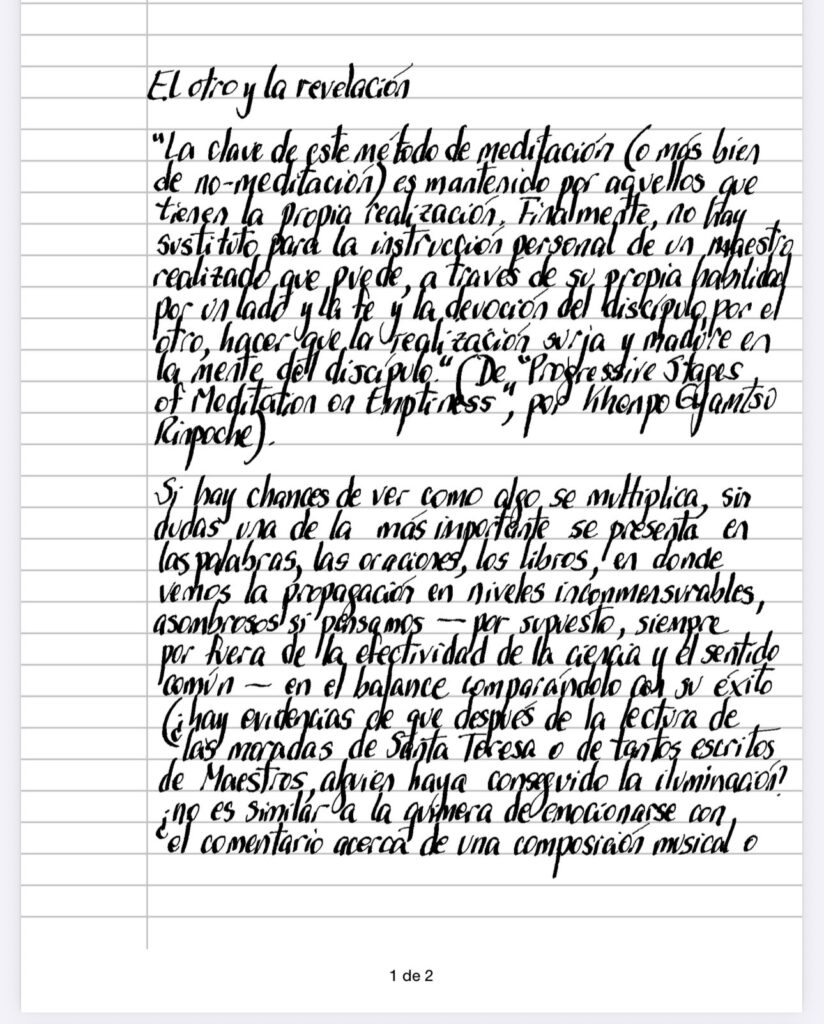 El otro y la revelación
"La clave de este método de meditación (o más bien
de no-meditación) es mantenido por aquellos que
tienen la propia realización. Finalmente, no hay
sustituto para la instrucción personal de un maestro
realizado que puede, a través de su propia habilidad
por un lado y la fe y la devoción del discípulo, por el
otro, hacer que la realización surja y madure en
la mente del discípulo." (De "Progressive Stages
of Meditation on Emptiness", por Khenpo Gyamtso
Rinpoche).
Si hay chances de ver como algo se multiplica, sin
dudas una de la más importante se presenta en
las palabras, las oraciones, los libros, en donde
vemos la propagación en niveles inconmensurables,
asombrosos si pensamos — por supuesto, siempre
por fuera de la efectividad de la ciencia y el sentido
común — en el balance comparándolo con su éxito
(¿hay evidencias de que después de la lectura de
las moradas de Santa Teresa o de tantos escritos
de Maestros, alguien haya conseguido la iluminación?
¿no es similar a la quimera de emocionarse con
el comentario acerca de una composición musical o
1 de 2